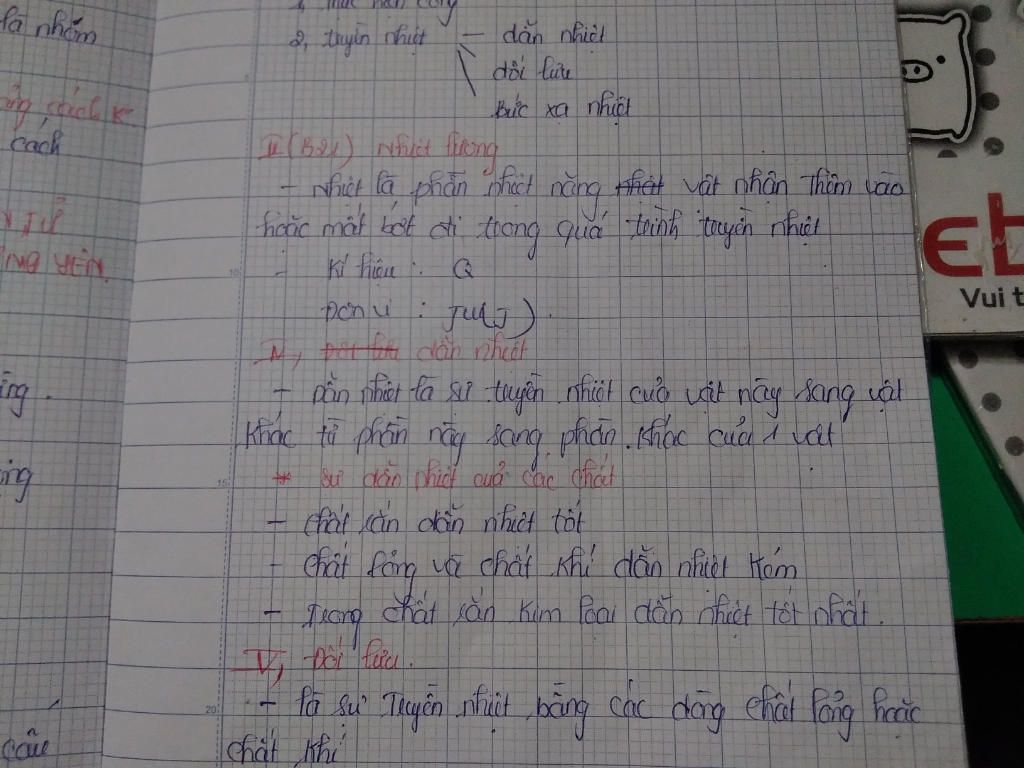 là nhóm
cách
2, truyền nhiệt — dẫn nhiệt
đối lưu
Bức xạ nhiệt
II (B21) Nhiệt lượng
- Nhiệt là phần nhiệt năng vật nhận thêm vào
hoặc mất bớt đi trong quá trình truyền nhiệt
- Kí hiệu : Q
Đơn vị : Ju(J).
IV, dẫn nhiệt
- Dẫn nhiệt là sự truyền nhiệt của vật này sang vật
khác từ phần này sang phần khác của 1 vật
* sự dẫn nhiệt của các chất
- chất rắn dẫn nhiệt tốt
- chất lỏng và chất khí dẫn nhiệt kém
- Trong chất rắn kim loại dẫn nhiệt tốt nhất.
V, Đối lưu.
- là sự Truyền nhiệt bằng các dòng chất lỏng hoặc
chất khí
câu
10
15
20
eb
Vui t